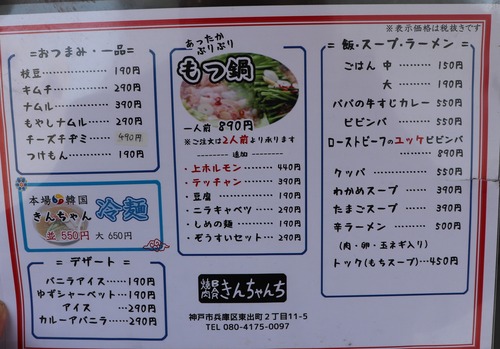 ※表示価格は税抜きです
=おつまみ・一品=
枝豆 190円
キムチ 290円
ナムル 390円
もやしナムル 290円
チーズチヂミ 490円
つけもん 190円
本場 韓国
きんちゃん 冷麺
並 550円 大 650円
= デザート =
バニラアイス 190円
ゆずシャーベット 190円
アイス 290円
カルーアバニラ 290円
あったか
ぷりぷり
もつ鍋
一人前 890円
※ご注文は2人前より承ります
追加
・上ホルモン 440円
・テッチャン 390円
・豆腐 190円
・ニラキャベツ 290円
・しめの麺 190円
・ぞうすいセット 290円
焼肉BAR きんちゃんち
神戸市兵庫区東出町2丁目11-5
TEL 080-4175-0097
=飯・スープ・ラーメン=
ごはん 中 150円
大 190円
パパの牛すじカレー 550円
ビビンバ 550円
ローストビーフのユッケビビンバ
890円
クッパ 550円
わかめスープ 390円
たまごスープ 390円
辛ラーメン 500円
(肉・卵・玉ネギ入り)
トック(もちスープ)…450円